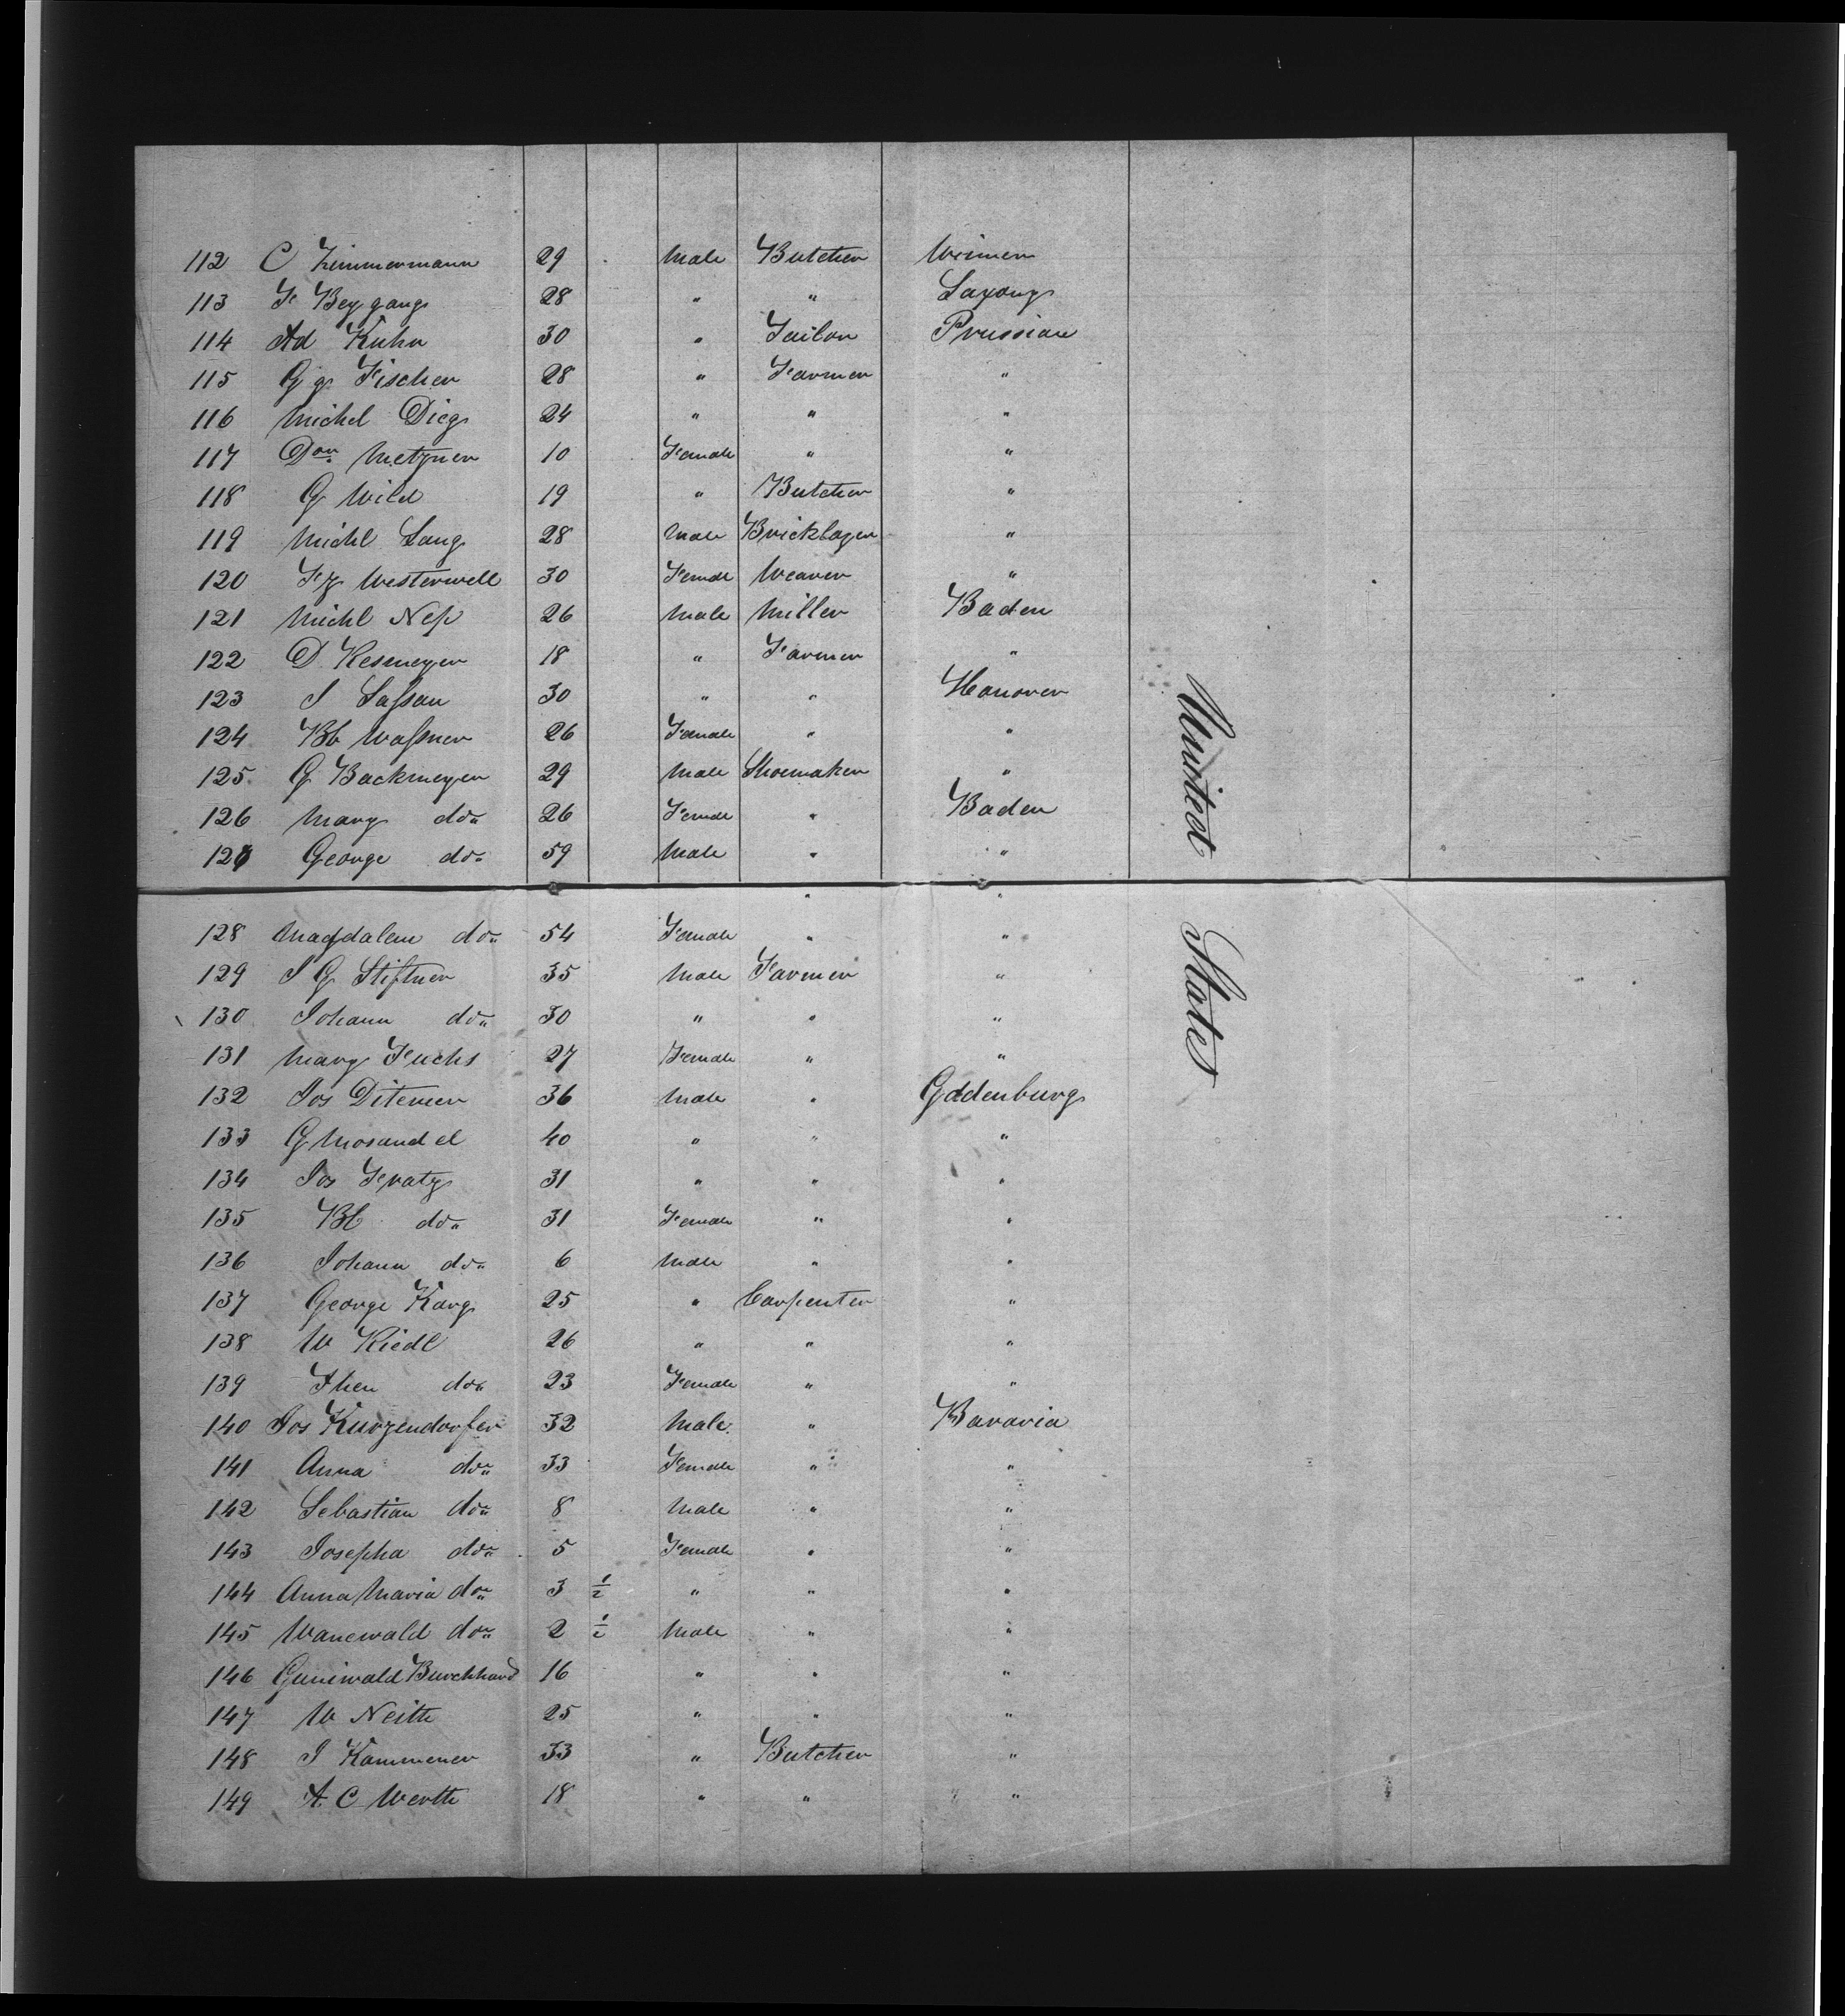 112 C Zimmermann 29 Male Butcher Weimer
113 F Beygang 28 " " Saxony
114 Ad Kuhn 30 " Tailor Prussian
115 Gg Fischer 28 " Farmer "
116 Michel Dieg 24 " " "
117 Metzner 10 Female " "
118 G Wild 19 " Butcher "
119 Michl Lang 28 Male Bricklayer "
120 Fz Westerwell 30 Female Weaver "
121 Michl Neß 26 Male Miller Baden
122 D Kesmeyer 18 " Farmer "
123 J Saßsan 30 " " Hanover
124 Bb Waßner 26 Female " "
125 G Backmeyer 29 Male Shoemaker "
126 Marg do 26 Female " Baden
127 George do 59 Male " "
" "
128 Magdalem do 54 Female " "
129 J G Stiftner 35 Male Farmer "
130 Johann do 30 " " "
131 Marg Fuchs 27 Female " "
132 Jos Ditemer 36 Male " Goldenburg
133 G Mosandel 40 " " "
134 Jos Fratz 31 " " "
135 Bb do 31 Female " "
136 Johann do 6 Male " "
137 George Karg 25 " Carpenter "
138 W Riedl 26 " " "
139 Ther do 23 Female " "
140 Jos Kurzendorfer 32 Male " Bavaria
141 Anna do 33 Female " "
142 Sebastian do 8 Male " "
143 Josepha do 5 Female " "
144 Anna Maria do 3 ½ " " "
145 Wanewald do 2 ½ Male " "
146 Guniwald Burckhard 16 " " "
147 W Neith 25 " " "
148 J Kammerer 33 " Butcher "
149 A C Werth 18 " " "
United States